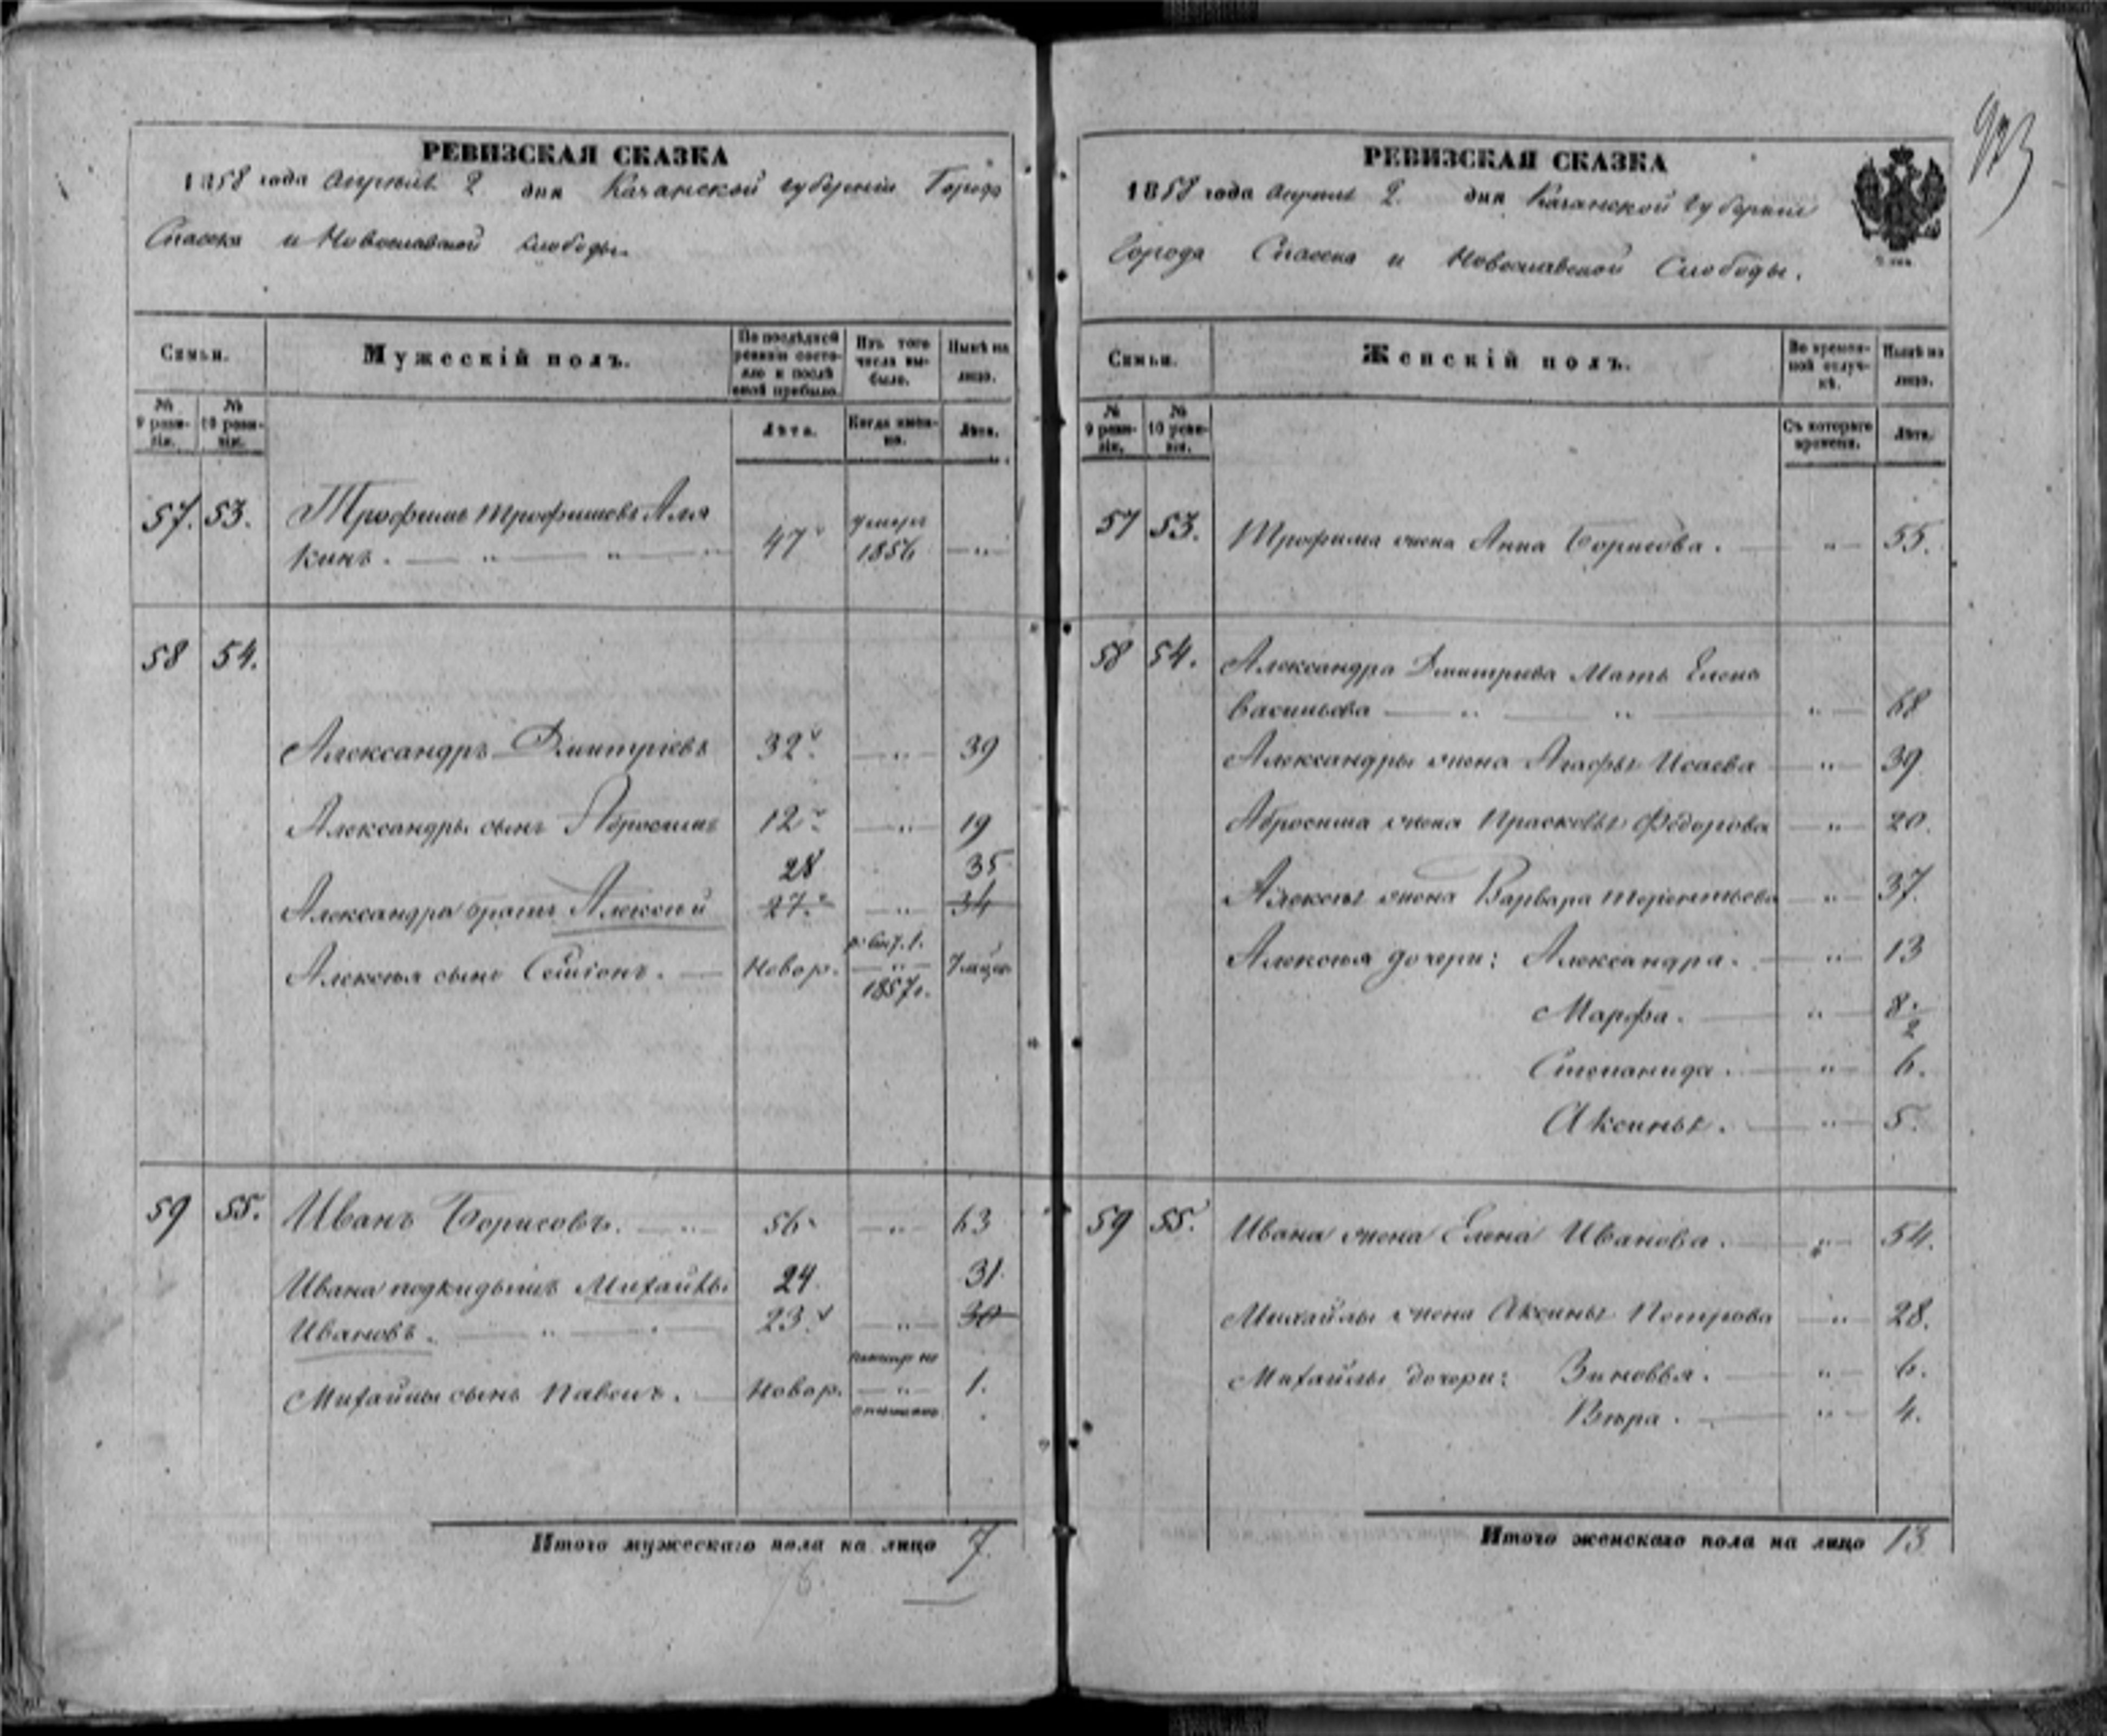 РЕВИЗСКАЯ СКАЗКА
1858 года Апреля 2 дня Казанской губернии Города
Спасска и Новоспавской слободы.
Семьи.
Мужескій полъ.
По послѣдней ревизіи состояло и послѣ оной прибыло.
Изъ того числа выбыло.
Нынѣ на лицо.
№ 9 ревизіи.
№ 10 ревизіи.
Лѣта.
Когда именно.
Лѣта.
57. 53. Трофимъ Трофимовъ Аля
кинъ. 47 умеръ 1856 — " —
58 54.
Александръ Дмитріевъ 32 — " — 39
Александры сынъ Абросимъ 12 — " — 19
28 35
Александра братъ Алексѣй 27 — " — 34
Алексѣя сынъ Семіонъ. Новор. 1857 г. 7 мѣся
59 55. Иванъ Борисовъ. 56 — " — 63
Ивана подкидышъ Михайлы 24. 31.
Ивановъ. 23. — " — 30
Михайлы сынъ Павелъ. Новор. — " — 1.
Итого мужескаго пола на лицо 7.
6.
РЕВИЗСКАЯ СКАЗКА
1858 года Апреля 2. дня Казанской Губерніи
Города Спасска и Новоспавской Слободы.
Семьи.
Женскій полъ.
Во временной отлучкѣ.
Нынѣ на лицо.
№ 9 ревизіи.
№ 10 ревизіи.
Съ котораго времени.
Лѣта.
57 53. Трофима жена Анна Борисова. — " — 55.
58 54. Александра Дмитріева Мать Елена
Васильева — " — 68
Александры жена Агафья Исаева — " — 39
Абросима жена Прасковья Федорова — " — 20.
Алексѣя жена Варвара Терентьева — " — 37.
Алексѣя дочери: Александра. — " — 13
Марфа. — " — 8. 2
Степанида. — " — 6.
Аксинья. — " — 5.
59 55. Ивана жена Елена Иванова. — " — 54.
Михайлы жена Аксинья Петрова — " — 28.
Михайлы дочери: Зиновья. — " — 6.
Вѣра. — " — 4.
Итого женскаго пола на лицо 13